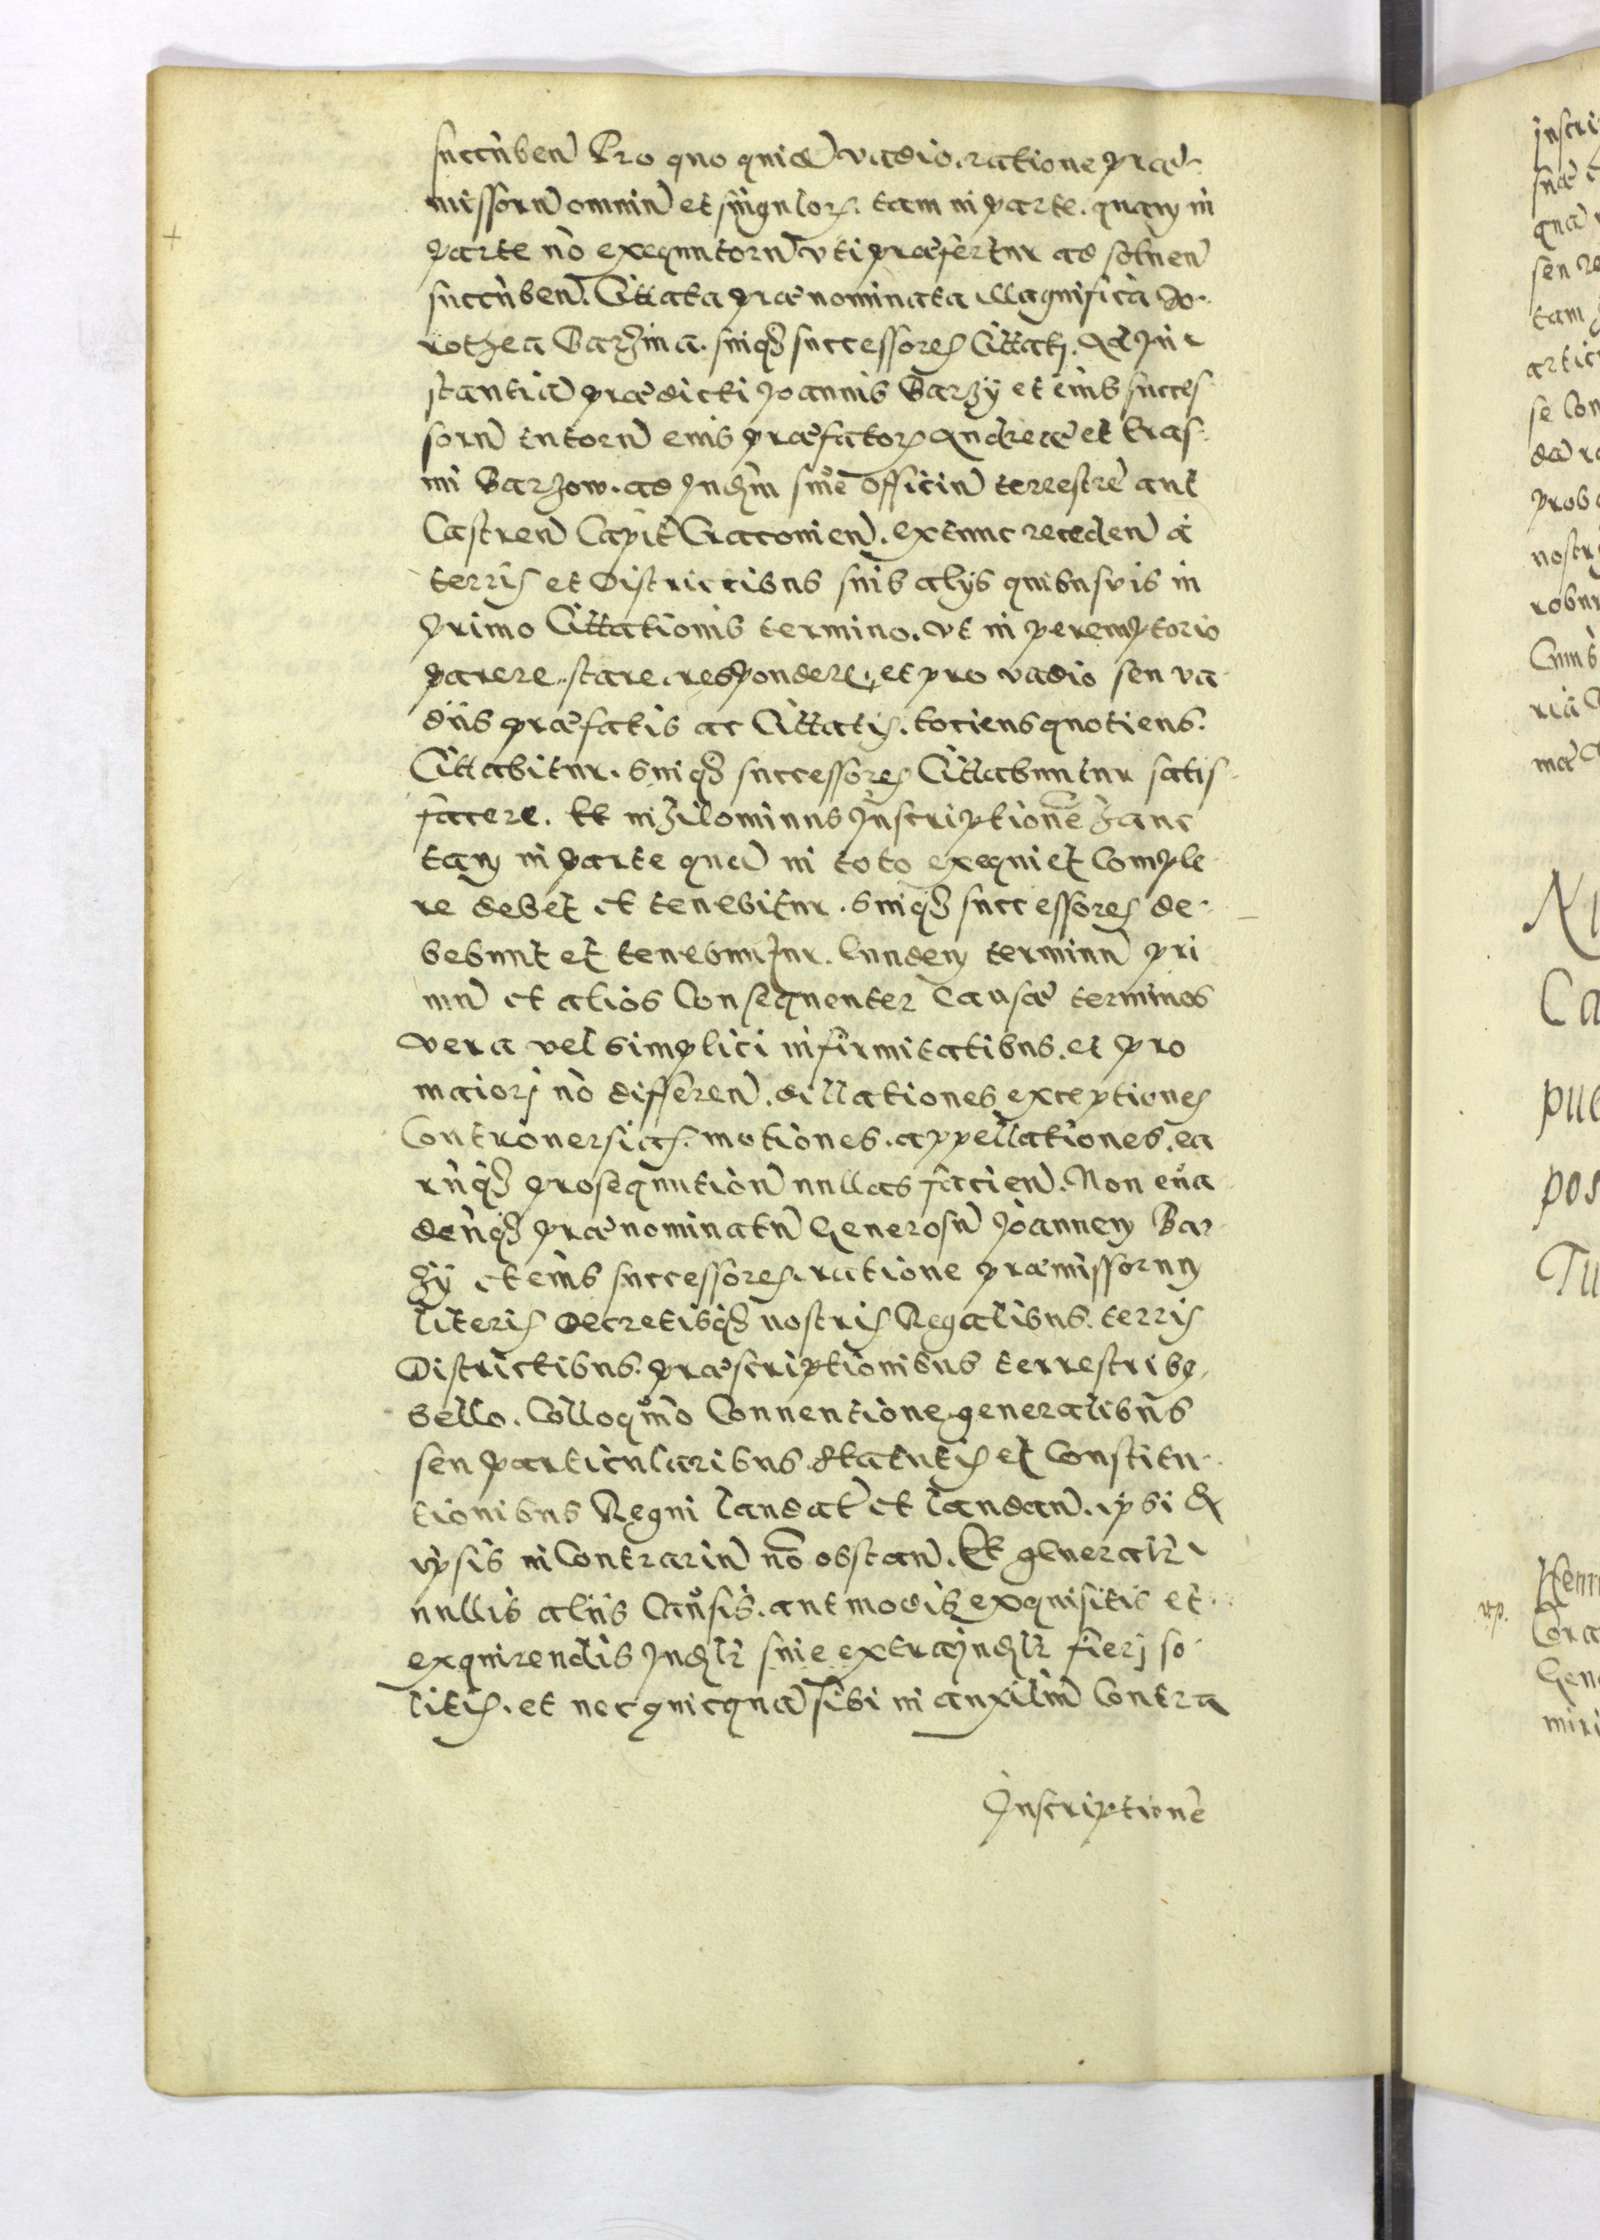 succūben̄ Pro quo quidē vadio. ratione præ
missorū omniū et singulor. tam in parte. quam in
parte nō exequutorū uti præfertur ad soluen̄
succūben̄. Cittata prænominata Magnifica Do.
rothea Barzina. suiq; successores Cittati. Ad in
stantiā prædicti Joannis Barzÿ et eius succes
sorū tutorū eius præfator Andreæ et Eras
mi Barzow. ad Judm siue officiū terrestrē aut
Castren̄ Capit̄ Cracouien̄. extunc receden̄ á
terris et Districtibus suis alijs quibusuis in
primo Cittationis termino. ut in peremptorio
parere. stare. respondere. et pro vadio seu va
diis præfatis ac Cittatis. tociens quotiens.
Cittabitur. suiq; successores Cittabuntur satis
facere. Et nihilominus Inscriptionē hanc
tam in parte quā in toto exequi et Comple
re debet et tenebitur. suiq; successores de
bebunt et tenebuntur. Eundem terminū pri
mū et alios Consequenter Causæ terminos
vera vel simplici infirmitatibus. et pro
maiori nō differen̄. dillationes exceptiones
Controuersias. motiones. appellationes. ea
rūq; prosequution̄ nullas facien̄. Non eua
denq; prænominatū Generosū Joannem Bar
zÿ et eius successores. ratione præmissorum
literis decretisq; nostris Regalibus. terris
Districtibus. præscriptionibus terrestribꝫ
bello. Colloquio Conuentione generalibus
seu particularibus. statutis et Constitu
tionibus Regni laudat̄ et laudan̄. ipsi &
ipsis in Contrariū nō obstan̄. Et generalr
nullis aliis Causis. aut modis exquisitis et
exquirendis Judlr siue extraiudlr fieri so
litis. et nec quicquā sibi in auxiliū Contra
Inscriptionē